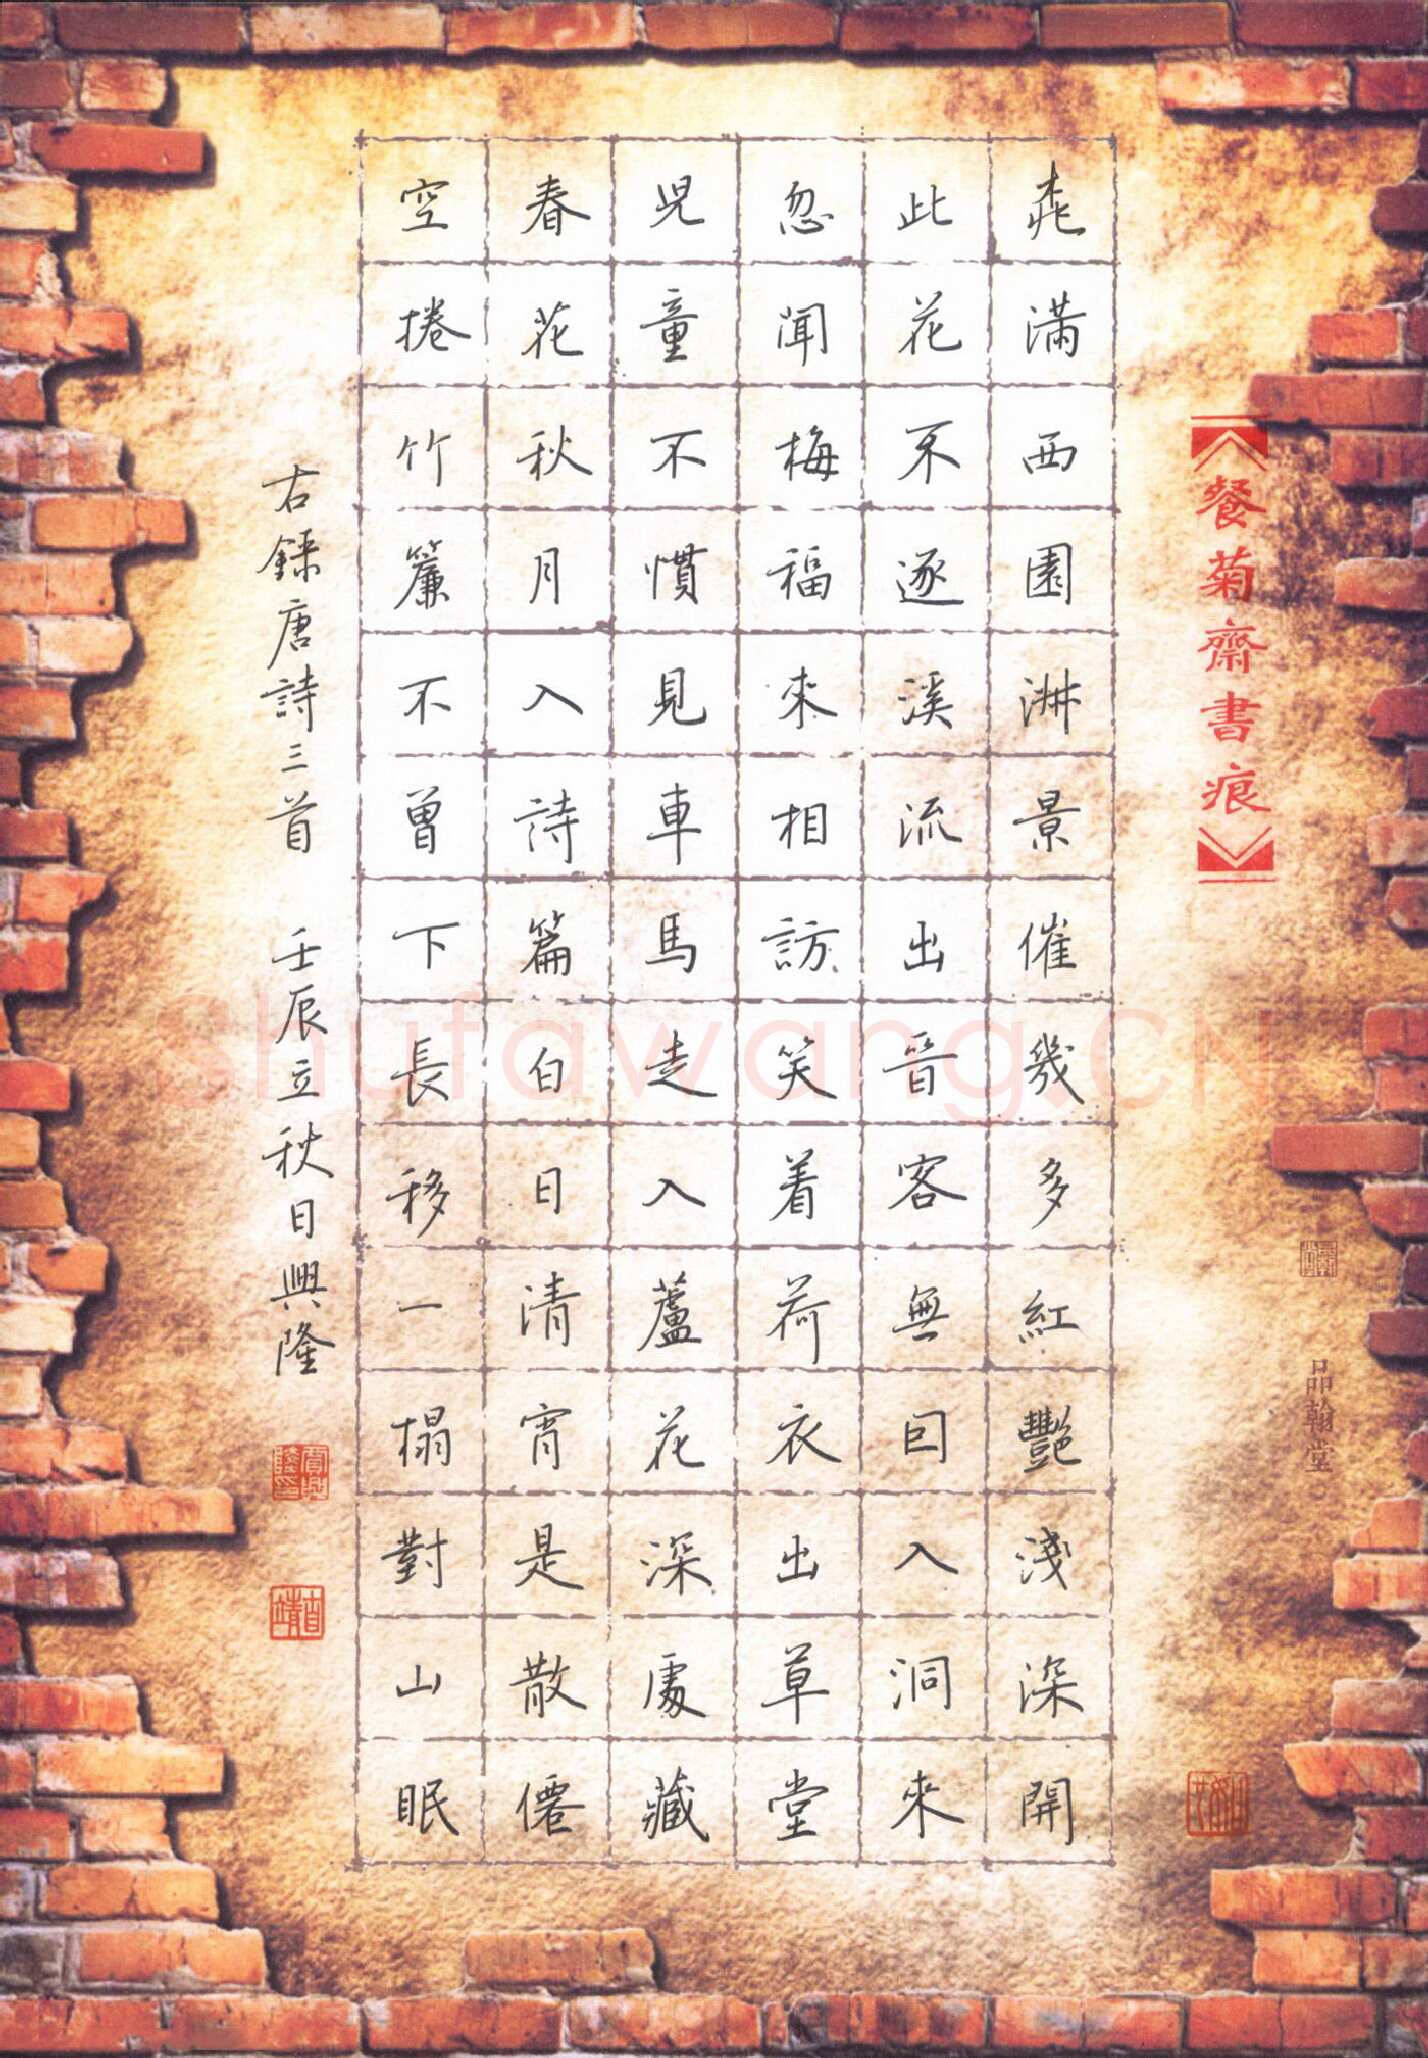 餐菊齋書痕
品翰堂
桃滿西園淑景催幾多紅豔淺深開
此花不逐溪流出晉客無囙入洞來
忽聞梅福來相訪笑着荷衣出草堂
兒童不慣見車馬走入蘆花深處藏
春花秋月入詩篇白日清宵是散僊
空捲竹簾不曾下長移一榻對山眠
右錄唐詩三首 壬辰立秋日興隆
shufawang.CN